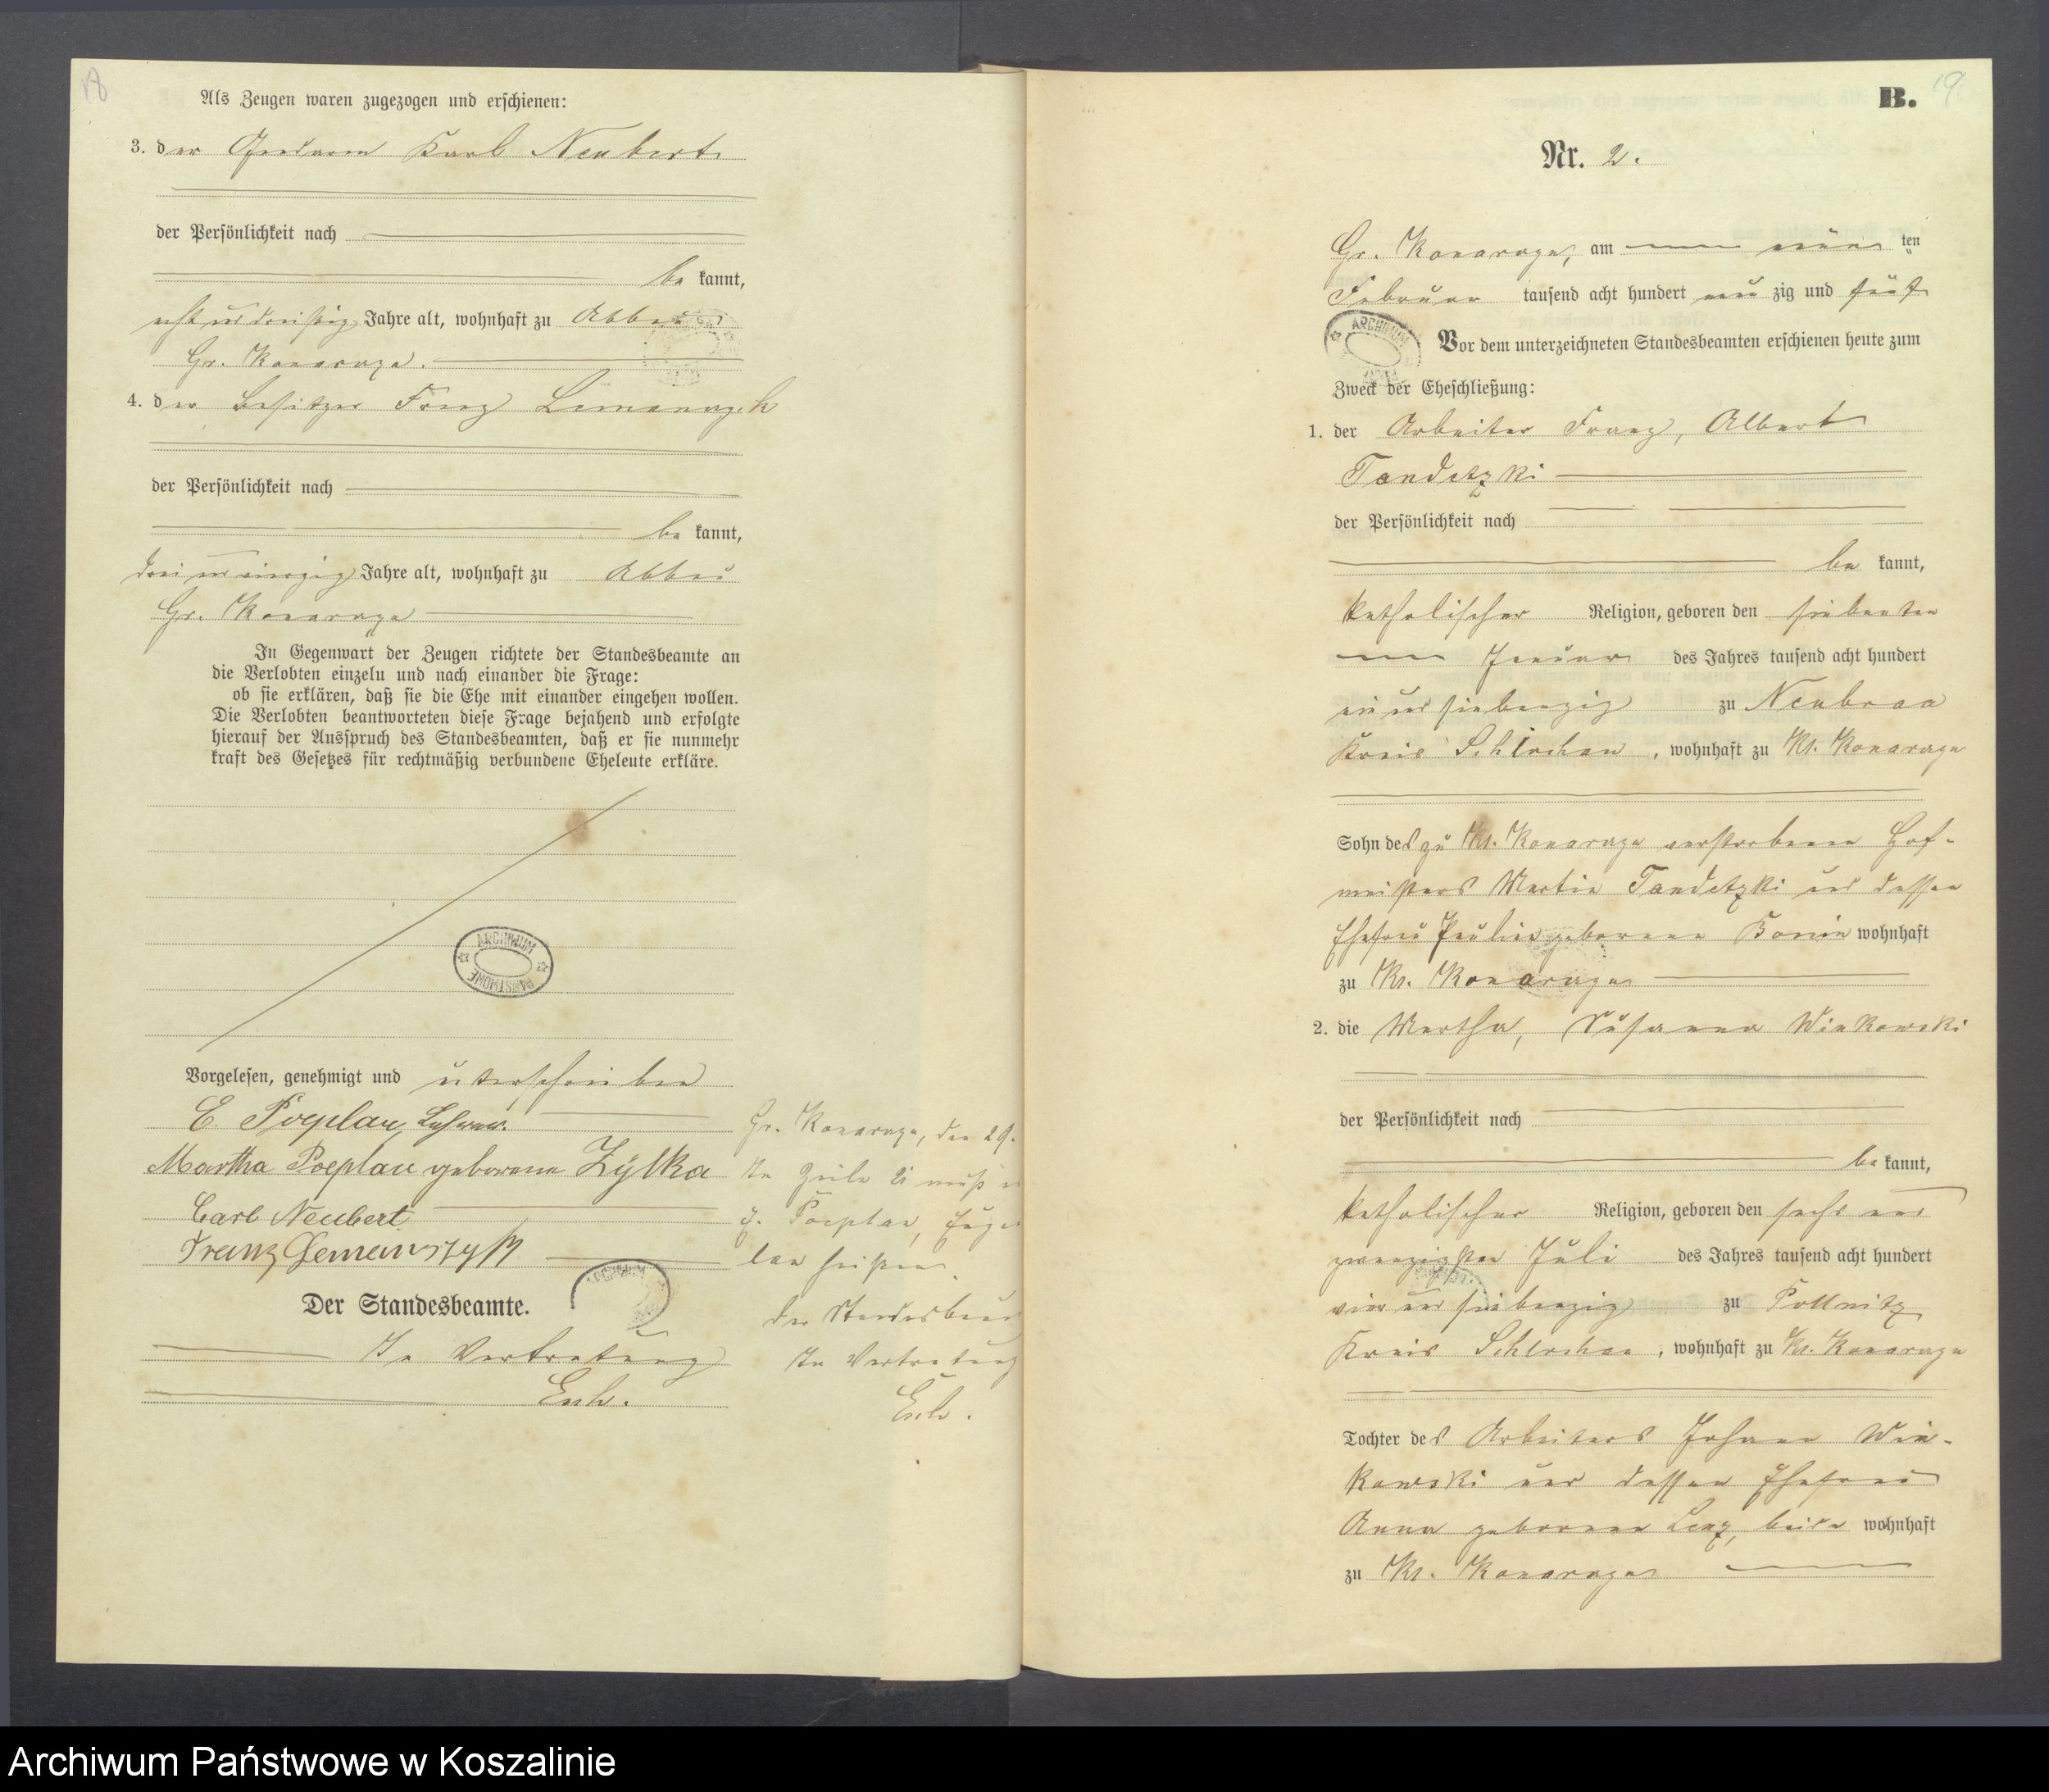 Als Zeugen waren zugezogen und erschienen:
3. der Gendarm Karl Neubert
der Persönlichkeit nach
be kannt,
acht und dreißig Jahre alt, wohnhaft zu Abbau
Gr. Konarczyn.
4. der Besitzer Franz Lemanczyk
der Persönlichkeit nach
be kannt,
drei und vierzig Jahre alt, wohnhaft zu Abbau
Gr. Konarczyn
In Gegenwart der Zeugen richtete der Standesbeamte an
die Verlobten einzeln und nach einander die Frage:
ob sie erklären, daß sie die Ehe mit einander eingehen wollen.
Die Verlobten beantworteten diese Frage bejahend und erfolgte
hierauf der Ausspruch des Standesbeamten, daß er sie nunmehr
kraft des Gesetzes für rechtmäßig verbundene Eheleute erkläre.
ARCHIWUM PAŃSTWOWE
Vorgelesen, genehmigt und unterschrieben
E. Poeplau, Lehrer.
Martha Poeplau geborene Zylka
Carl Neubert
Franz Lemanszyk
Der Standesbeamte.
In Vertretung
Gr. Konarczyn, den 29.
In Zeile 21 muß
Poeplau,
lau heißen.
Der Standesbeam
In Vertretung
B. 19
Nr. 2.
Gr. Konarczyn, am neun ten
Februar tausend acht hundert neun zig und fünf
Vor dem unterzeichneten Standesbeamten erschienen heute zum
Zweck der Eheschließung:
1. der Arbeiter Franz, Albert
Tandetzki
der Persönlichkeit nach
be kannt,
katholischer Religion, geboren den siebenten
Januar des Jahres tausend acht hundert
ein und siebenzig zu Neubraa
Kreis Schlochau, wohnhaft zu Kl. Konarczyn
Sohn des zu Kl. Konarczyn verstorbenen Hof-
meisters Martin Tandetzki und dessen
Ehefrau Pauline geborene Bonin wohnhaft
zu Kl. Konarczyn
2. die Martha, Susanna Winkowski
der Persönlichkeit nach
be kannt,
katholischer Religion, geboren den sechs und
zwanzigsten Juli des Jahres tausend acht hundert
vier und siebenzig zu Pollnitz
Kreis Schlochau, wohnhaft zu Kl. Konarczyn
Tochter des Arbeiters Johann Win-
kowski und dessen Ehefrau
Anna geborene Lenz, beide wohnhaft
zu Kl. Konarczyn
Archiwum Państwowe w Koszalinie